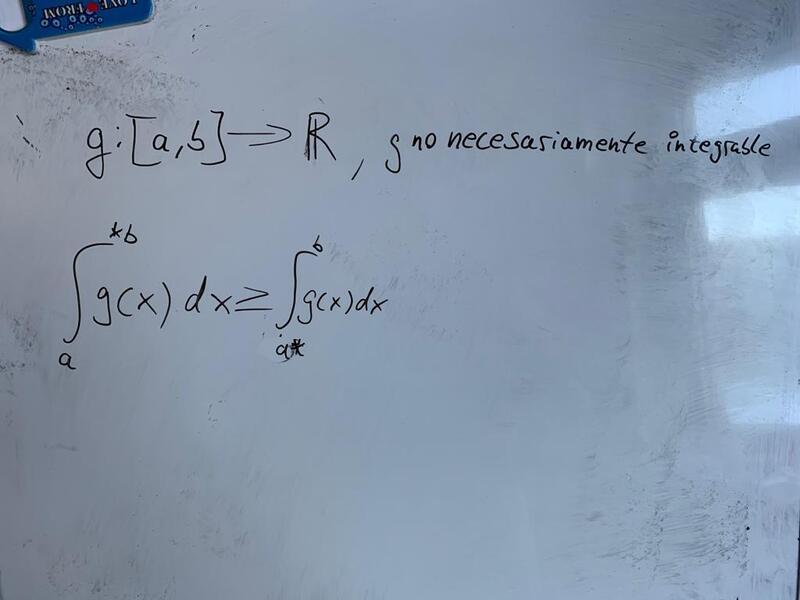 LOVE FROM
g:[a,b]→ℝ, g no necesariamente integrable
∫_a^{*b} g(x) dx ≥ ∫_{a*}^b g(x)dx